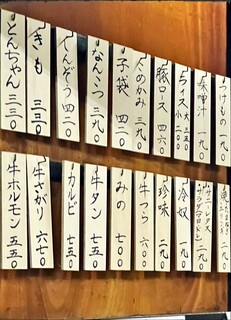 つけもの 一九〇
味噌汁 一九〇
ライス 大二五〇 小二〇〇
豚ロス 四六〇
てのかみ 三九〇
子袋 四二〇
なんこつ 三九〇
しんぞう 四二〇
きも 三三〇
とんちゃん 三三〇
サニーレタス
冷奴 一九〇
珍味 二九〇
牛つら 六〇〇
みの 七〇〇
牛タン 七五〇
カルビ 七五〇
牛さがり 六七〇
牛ホルモン 五五〇